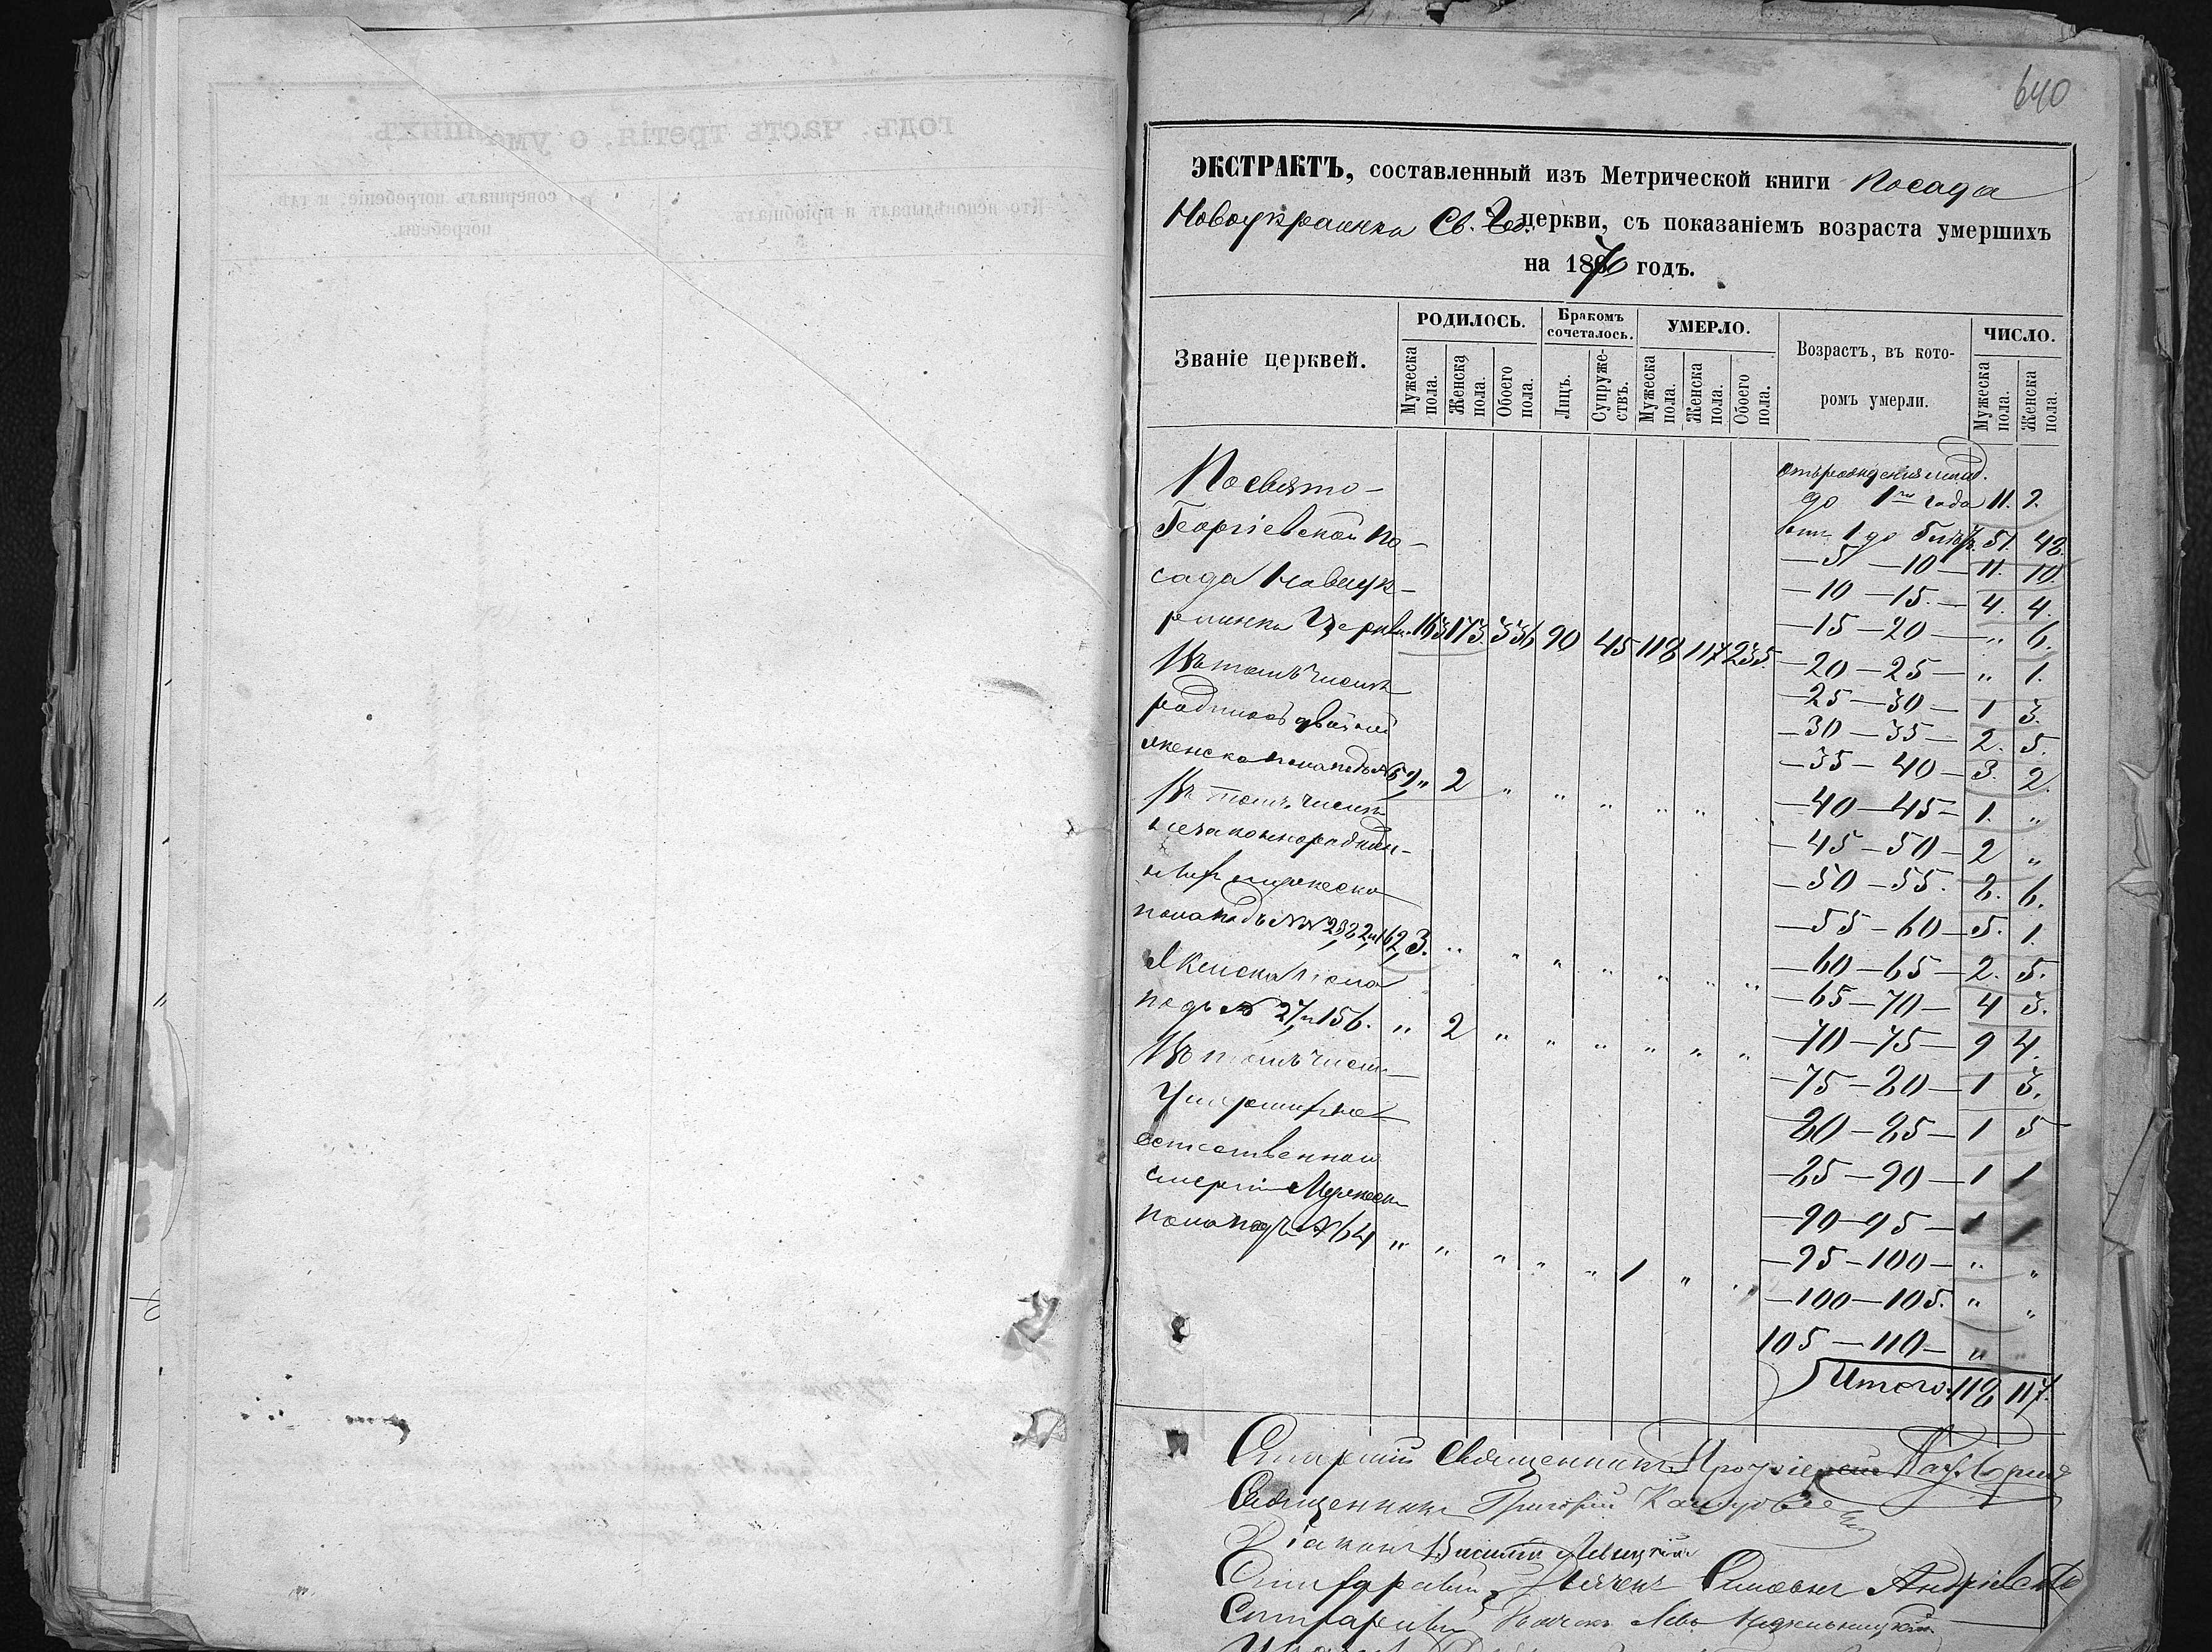 640
ЭКСТРАКТЪ, составленный изъ Метрической книги Посада
Новоукраинка Св. Гео. церкви, съ показаніемъ возраста умершихъ
на 1876 годъ.
Званіе церквей.
РОДИЛОСЬ.
Мужеска пола.
Женска пола.
Обоего пола.
Бракомъ сочеталось.
Лицъ.
Супруже-ствъ.
УМЕРЛО.
Мужеска пола.
Женска пола.
Обоего пола.
Возрастъ, въ кото-
ромъ умерли.
ЧИСЛО.
Мужеска пола.
Женска пола.
По Свято-
Георгіевской по-
сада Новоук-
раинка Церкви. 163 173. 336 90 45 118 117 235.
Въ томъ числѣ
родилось двойней
женска пола подъ № 59 " 2 " " " " "
Въ томъ числѣ
незаконнорожден-
ныхъ мужеска
пола подъ №№ 23, 82, и 162, 3. " " " " " " "
Женска пола
подъ № 27, и 156. " 2 " " " " " "
Въ томъ числѣ
Умершихъ не
естественной
смерти Мужеска
пола подъ № 64 " " " " " 1 " "
отъ рожденія
до 1го года 11.
отъ 1 до 5 лѣтъ 57. 48.
— 5 — 10 — 11. 10.
— 10 — 15. — 4. 4.
— 15 — 20 — " 6.
— 20 — 25 — " 1.
— 25 — 30 — 1 3.
— 30 — 35 — 2. 5.
— 35 — 40 — 3. 2.
— 40 — 45 — 1. "
— 45 — 50 — 2 "
— 50 — 55. 2. 6.
— 55 — 60 — 5. 1.
— 60 — 65 — 2. 5.
— 65 — 70 — 4 3.
— 70 — 75 — 9 4.
— 75 — 80 — 1 3.
— 80 — 85 — 1 5
— 85 — 90 — 1 1
— 90 — 95 — 1 1
— 95 — 100 — " "
— 100 — 105. " "
105 — 110 — " "
Итого. 118 117.
Старшій Священникъ Протоіерей
Священникъ Григорій
Діаконъ Василій Левицкій
Андріевскій
годъ. часть третія, о умершихъ
Кто исповѣдывалъ и пріобщалъ.
Кто совершалъ погребеніе, и гдѣ
погребены.